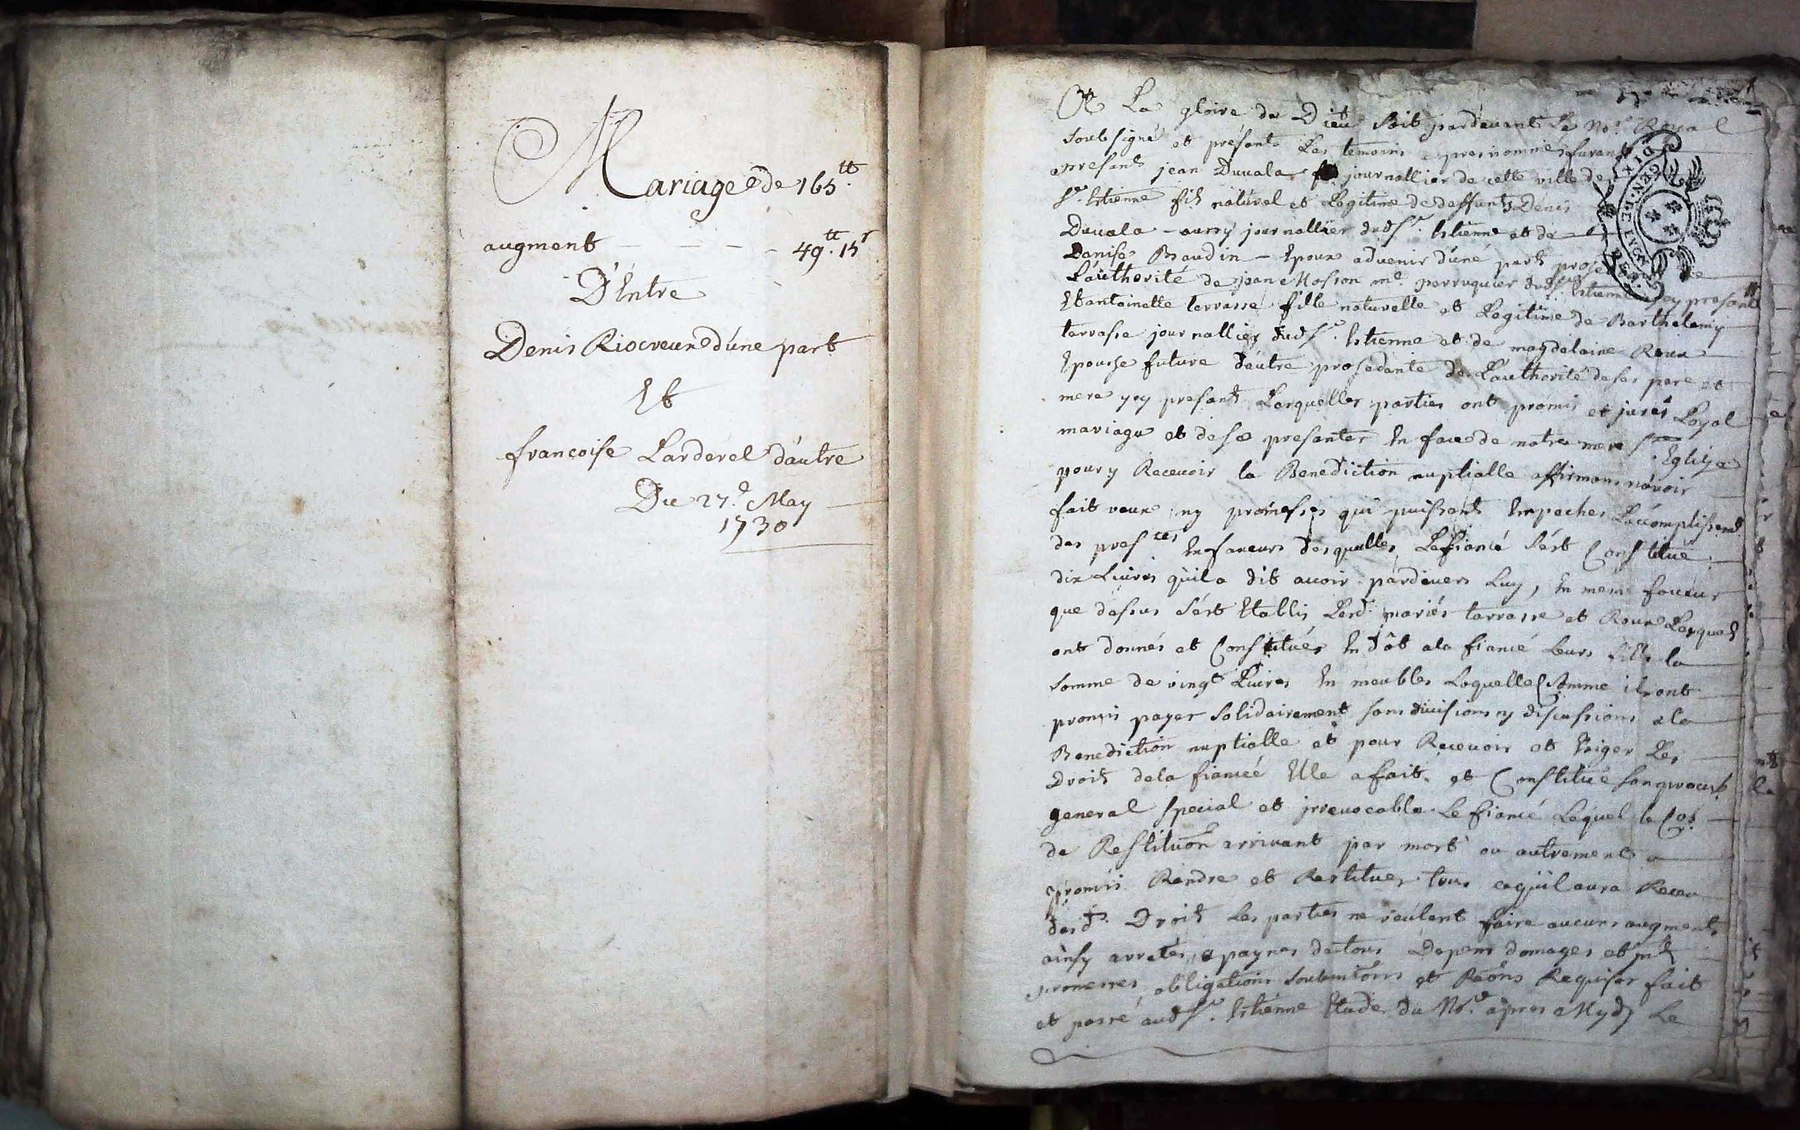 Mariage de 165ᵗᵗ
augment - - - - 49ᵗᵗ. 15ˢ
D'Entre
Denis Riocreux d'une part
Et
francoise Larderel d'autre
Du 27ᵉ. May
1730
A La gloire de Dieu soit pardevant Le Noʳᵉ. Royal
soubsigné et présents Les temoins apres nommés furent
presents jean Duvala journallier de cette ville de
Sᵗ. Etienne fils naturel et Legitime de deffunts Denis
Duvala aussy journallier dudᵗ Sᵗ. Etienne et de
Denise Baudin Epoux advenir d'une part
L'authorité de jean Mosson mᵉ. perruquier dudᵗ Sᵗ Etienne jcy present
Et antoinette terrasse fille naturelle et Legitime de Barthelemy
terrasse journallier dudᵗ Sᵗ. Etienne et de magdelaine Roux
Epouse future d'autre prosedante de L'authorité de ses pere et
mere jcy presents Lesquelles parties ont promis et jurés Loyal
mariage et de se presenter En face de notre mere Sᵗᵉ. Eglize
pour y Recevoir la Benediction nuptialle affirmans n'avoir
fait voeux ny promesses qui puissent Empecher L'accomplissemᵗ
des presᵗᵉˢ En faveurs desquelles Le fiancé s'est Constitué
dix Livres qu'il a dit avoir pardevers Luy, En meme faveur
que dessus s'est Etablis Lesdᵗˢ mariés terrasse et Roux Lesquels
ont donnés et Constitués En dôt a la fiancé Leurs fille la
somme de vingt Livres En meubles Laquelle somme ils ont
promis payer solidairement sans divisions ny discussions a la
Benediction nuptialle et pour Recevoir et Exiger Les
Droits de la fiancéé Elle a fait et Constitué son procuʳ.
general special et jrrevocable Le fiancé Lequel le Cas
de Restitu͠on arrivant par mort ou autrement a
promis Rendre et Restituer tous ce qu'il aura Receu
desdᵗˢ. Droits Les parties ne veulent faire aucuns augments
ainsy arretés a paynes de tous Depens domages et jnᵗˢ
promesses obligations soubmi͠ons et Ren͠ons Requises fait
et passé audᵗ Sᵗ. Etienne Etude du Noʳᵉ. apres Mydy Le